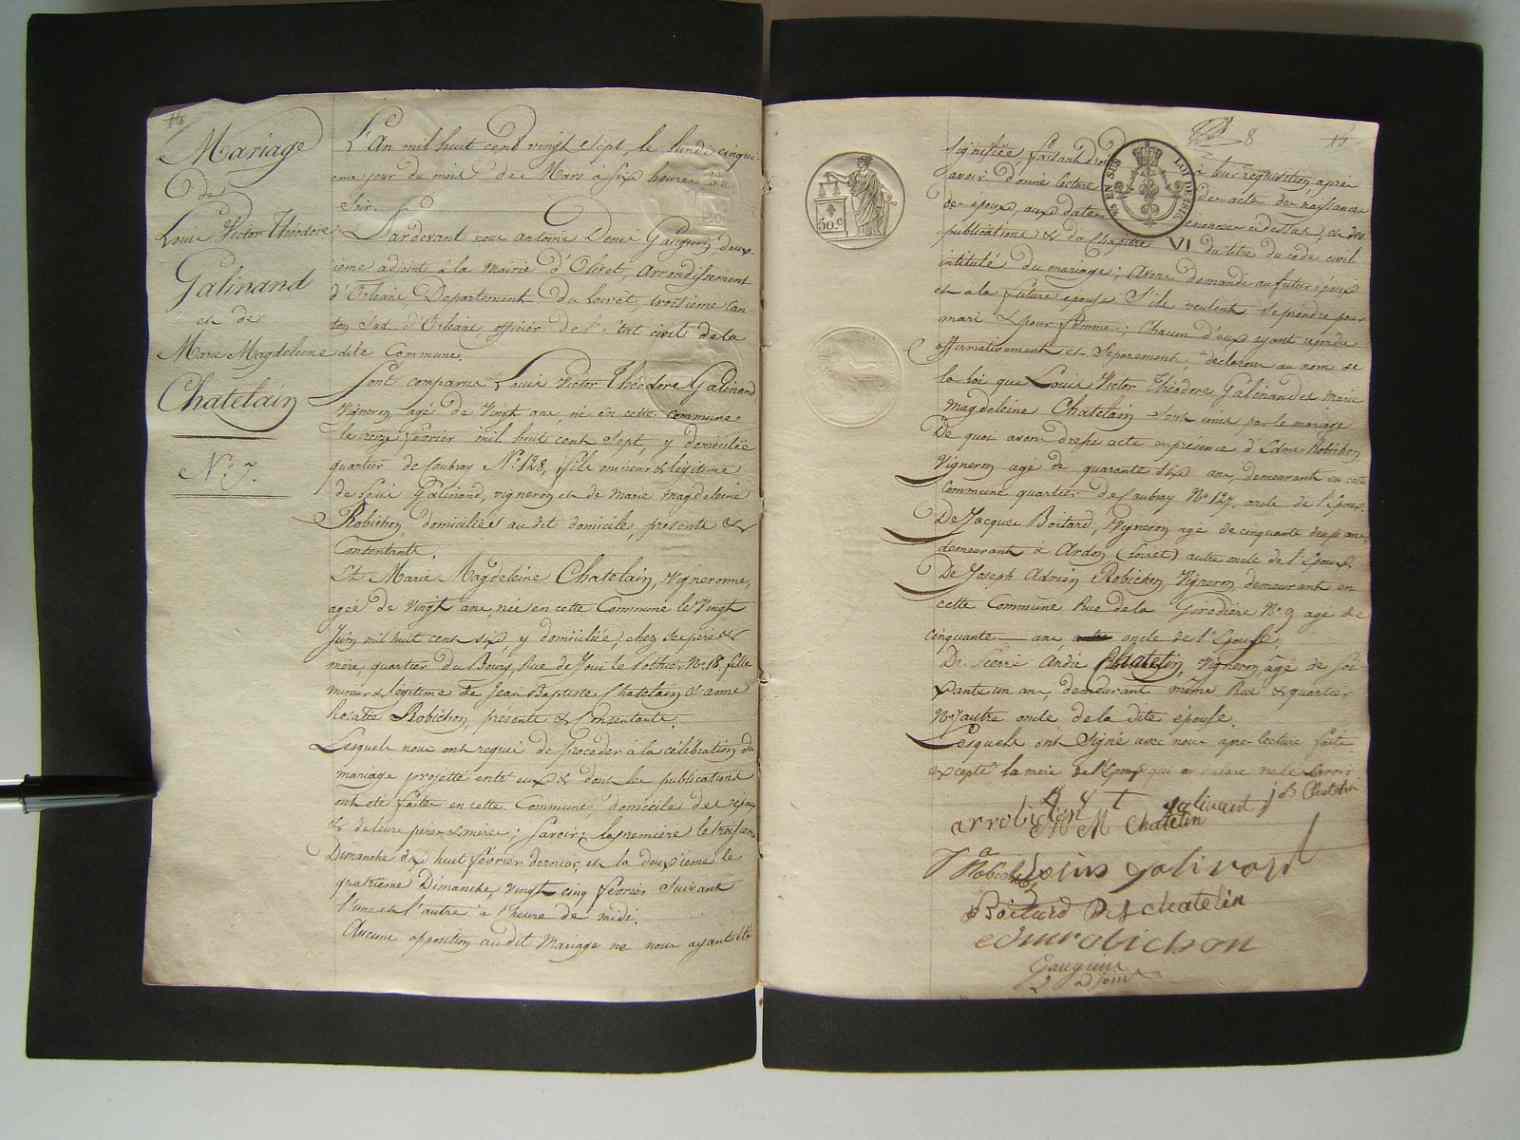 Mariage
de
Louis Victor Théodore
Galinand
et de
Marie Magdeleine
Chatelain
N.° 7.
L'An mil huit cent vingt sept, le lundi cinqui
eme jour du mois de Mars à six heures du
soir.
Pardevant nous Antoine Denis Gauguin, deux-
ieme adjoint à la mairie d'Olivet, arrondissement
d'Orléans Departement du Loiret, troisieme can
ton sud d'Orléans, officier de l'état civil de la
dite Commune.
Sont comparus Louis Victor Théodore Galinand
vigneron agé de vingt ans, né en cette commune
le onze février mil huit cent sept, y domicilié
quartier de Caubray N.° 128, fils mineur & légitime
de Louis Galinand, vigneron et de marie magdeleine
Robichon, domiciliés au dit domicile, présents &
Consentants.
Et Marie Magdeleine Chatelain, Vigneronne,
agée de vingt ans, née en cette Commune le vingt
Juin mil huit cent six y domiciliée, chez ses père &
mère, quartier du Bourg, Rue de N.° 18, fille
mineure & légitime de Jean Baptiste Chatelain & anne
Rosalie Robichon, présents & Consentants.
Lesquels nous ont requis de proceder à la célébration du
mariage projetté entr'eux & dont les publications
ont été faites en cette Commune, domicile des époux
& de leurs pères & mères; Savoir: la premiere le troisieme
Dimanche dix huit février dernier, et la deuxieme le
quatrieme Dimanche, vingt cinq février suivant
l'une et l'autre à l'heure de midi.
Aucune opposition au dit Mariage ne nous ayant été
8
signifiée, faisant droit à leur requisition, après
avoir donné lecture des actes de naissance
des époux, aux dates énoncées ci dessus, & des
publications & du Chapitre VI du titre du code civil
intitulé du mariage; Avons demandé au futur époux
et à la future épouse s'ils veulent se prendre pour
mari & pour femme; Chacun d'eux ayant répondu
affirmativement et séparement, déclarons au nom de
la loi que Louis Victor Théodore Galinand et Marie
Magdeleine Chatelain sont unis par le mariage
De quoi avons dressé acte en présence d'Edme Robichon
Vigneron agé de quarante six ans, demeurant en cette
Commune quartier de Caubray N.° 127, oncle de l'époux.
De Jacques Boitard, Vigneron agé de cinquante deux ans,
demeurant à Ardon (Loiret) autre oncle de l'époux.
De Joseph Adrien Robichon, Vigneron, demeurant en
cette Commune Rue de la Girodière N.° 9 agé de
cinquante ans oncle de l'épouse;
De Pierre André Chatelain, Vigneron, agé de soi
xante un ans, demeurant même Rue & quartier
autre oncle de la dite épouse.
Lesquels ont signé avec nous après lecture faite
excepté la mère de l'époux qui a déclaré ne le savoir
arrobichon L V T galinand J B Chatelain
M M Chatelin
J a Robichon Louis Galinand
Boitard P A chatelin
edmerobichon
Gauguin
2 Adjoint
50 c.